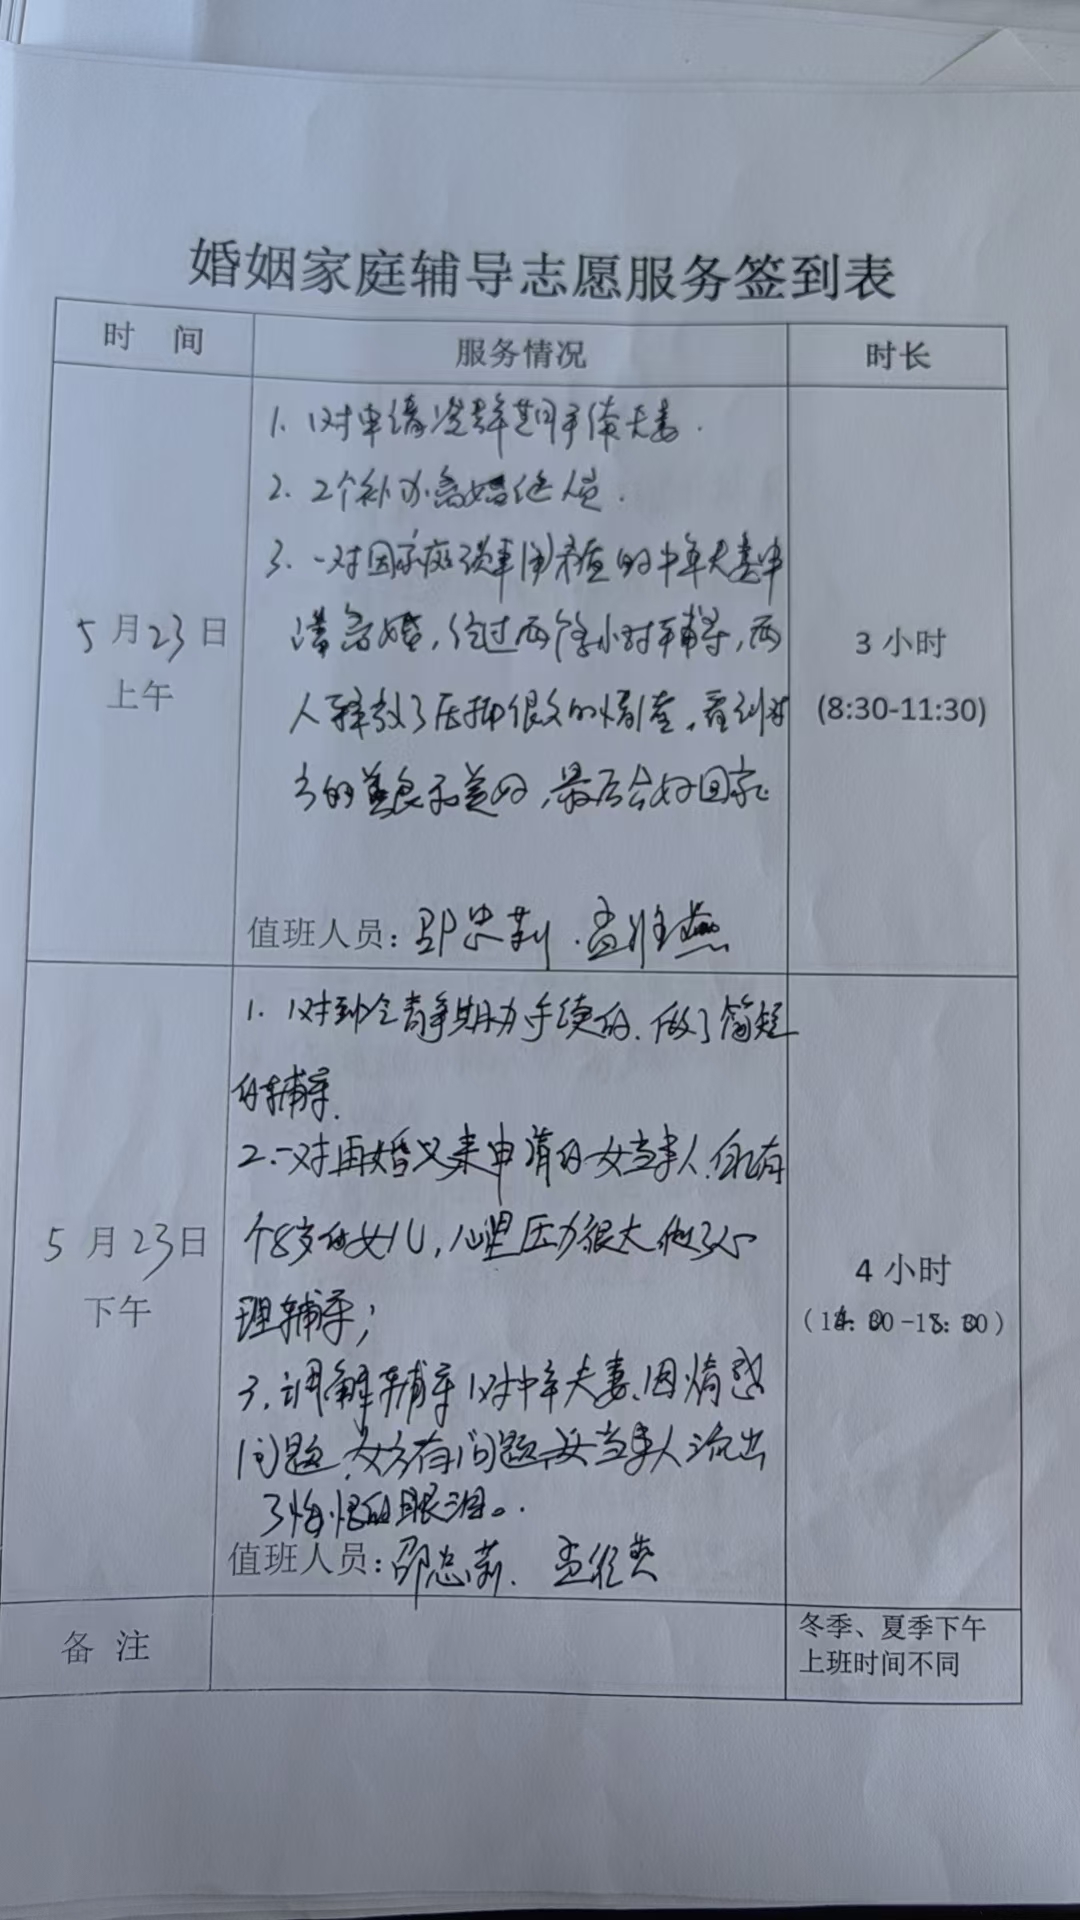 婚姻家庭辅导志愿服务签到表
时 间
服务情况
时长
5月23日
上午
1. 1对申请冷静期手续夫妻.
2. 2个补办离婚证人员.
3. 一对因家庭琐事闹矛盾的中年夫妻申
请离婚,经过两个小时辅导,两
人释放了压抑很久的情绪,看到对
方的善良和美好,最后会好回家
值班人员:邵忠莉.孟
3 小时
(8:30-11:30)
5月23日
下午
1. 1对到冷静期办手续的.做了简短
的辅导.
2.一对再婚又来申请的女当事人.有
个8岁的女儿,心理压力很大做了心
理辅导;
3.调解辅导1对中年夫妻.因情感
问题.女方有问题.女当事人流出
了悔恨的眼泪。.
值班人员:邵忠莉.孟
4 小时
备 注
冬季、夏季下午
上班时间不同